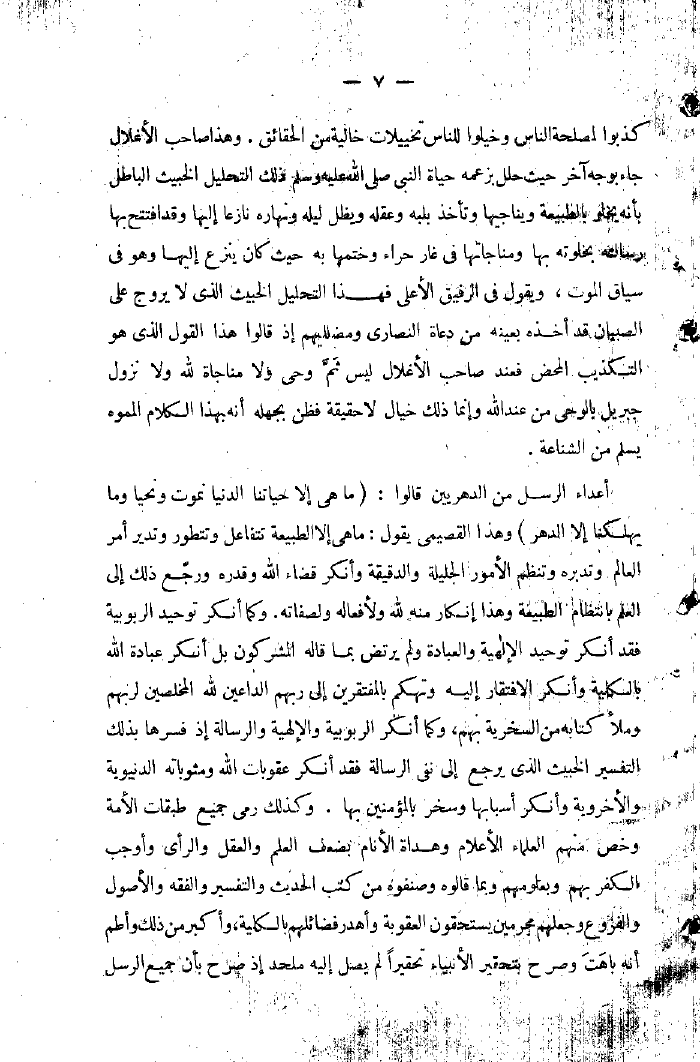 — ٧ —
كذبوا لمصلحة الناس وخيلوا للناس تخييلات خالية من الحقائق . وهذا صاحب الأغلال
جاء بوجه آخر حيث حلل بزعمه حياة النبى صلى الله عليه وسلم ذلك التحليل الخبيث الباطل
بأنه يخلو بالطبيعة ويناجيها وتأخذ بلبه وعقله ويظل ليله ونهاره نازعا إليها وقد افتتح بها
رسالته بخلوته بها ومناجاتها فى غار حراء وختمها به حيث كان ينزع إليها وهو فى
سياق الموت ، ويقول فى الرفيق الأعلى فهذا التحليل الخبيث الذى لا يروج على
الصبيان قد أخذه بعينه من دعاة النصارى ومضلليهم إذ قالوا هذا القول الذى هو
التكذيب المحض فعند صاحب الأغلال ليس ثَمَّ وحى ولا مناجاة لله ولا نزول
جبريل بالوحى من عند الله وإنما ذلك خيال لا حقيقة فظن بجهله أنه بهذا الكلام المموه
يسلم من الشناعة .
أعداء الرسل من الدهريين قالوا : ( ما هى إلا حياتنا الدنيا نموت ونحيا وما
يهلكنا إلا الدهر ) وهذا القصيمى يقول : ماهى إلا الطبيعة تتفاعل وتتطور وتدير أمر
العالم وتدبره وتنظم الأمور الجليلة والدقيقة وأنكر قضاء الله وقدره ورجّع ذلك إلى
العلم بانتظام الطبيعة وهذا إنكار منه لله ولأفعاله ولصفاته . وكما أنكر توحيد الربوبية
فقد أنكر توحيد الإلهية والعبادة ولم يرتض بما قاله المشركون بل أنكر عبادة الله
بالكلية وأنكر الافتقار إليه وتهكم بالمفتقرين إلى ربهم الداعين لله المخلصين لربهم
وملأ كتابه من السخرية بهم، وكما أنكر الربوبية والإلهية والرسالة إذ فسرها بذلك
التفسير الخبيث الذى يرجع إلى نفى الرسالة فقد أنكر عقوبات الله ومثوباته الدنيوية
والأخروية وأنكر أسبابها وسخر بالمؤمنين بها . وكذلك رمى جميع طبقات الأمة
وخص منهم العلماء الأعلام وهداة الأنام بضعف العلم والعقل والرأى وأوجب
الكفر بهم وبعلومهم وبما قالوه وصنفوه من كتب الحديث والتفسير والفقه والأصول
والفروع وجعلهم مجرمين يستحقون العقوبة وأهدر فضائلهم بالكلية، وأكبر من ذلك وأطم
أنه باهَتَ وصرح بتحقير الأنبياء تحقيراً لم يصل إليه ملحد إذ صرح بأن جميع الرسل